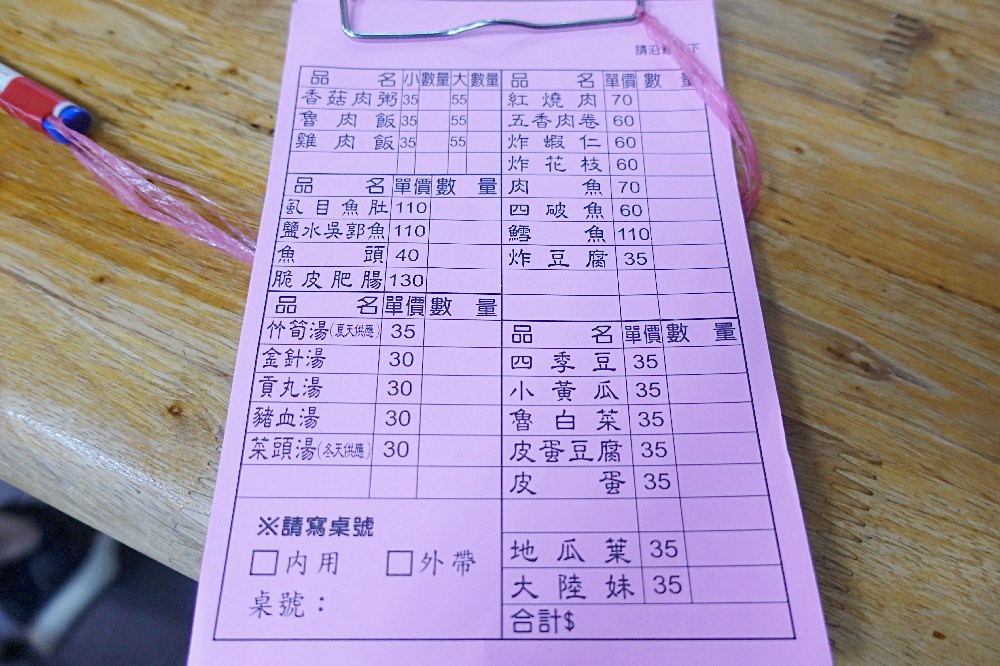 請沿 下
品 名 小 數量 大 數量
香菇肉粥 35 55
魯肉飯 35 55
雞肉飯 35 55
品 名 單價 數 量
虱目魚肚 110
鹽水吳郭魚 110
魚頭 40
脆皮肥腸 130
品 名 單價 數 量
竹筍湯(夏天供應) 35
金針湯 30
貢丸湯 30
豬血湯 30
菜頭湯(冬天供應) 30
※請寫桌號
□內用 □外帶
桌號：
品 名 單價 數 量
紅燒肉 70
五香肉卷 60
炸蝦仁 60
炸花枝 60
肉魚 70
四破魚 60
鱈魚 110
炸豆腐 35
品 名 單價 數 量
四季豆 35
小黃瓜 35
魯白菜 35
皮蛋豆腐 35
皮蛋 35
地瓜葉 35
大陸妹 35
合計$